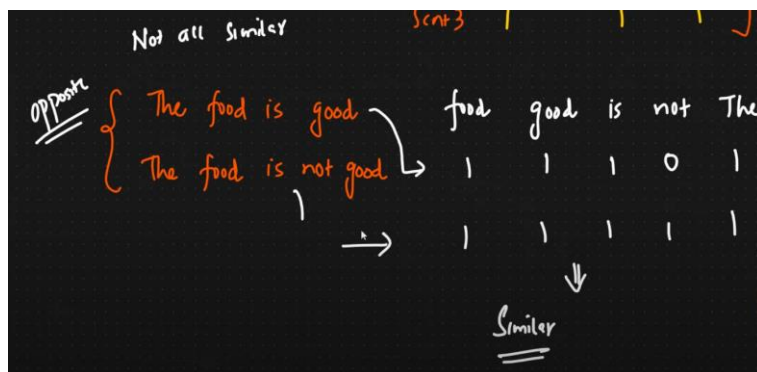 Not all Similar
Sent3
Opposite
The food is good
The food is not good
food good is not The
1 1 1 0 1
1 1 1 1 1
Similar